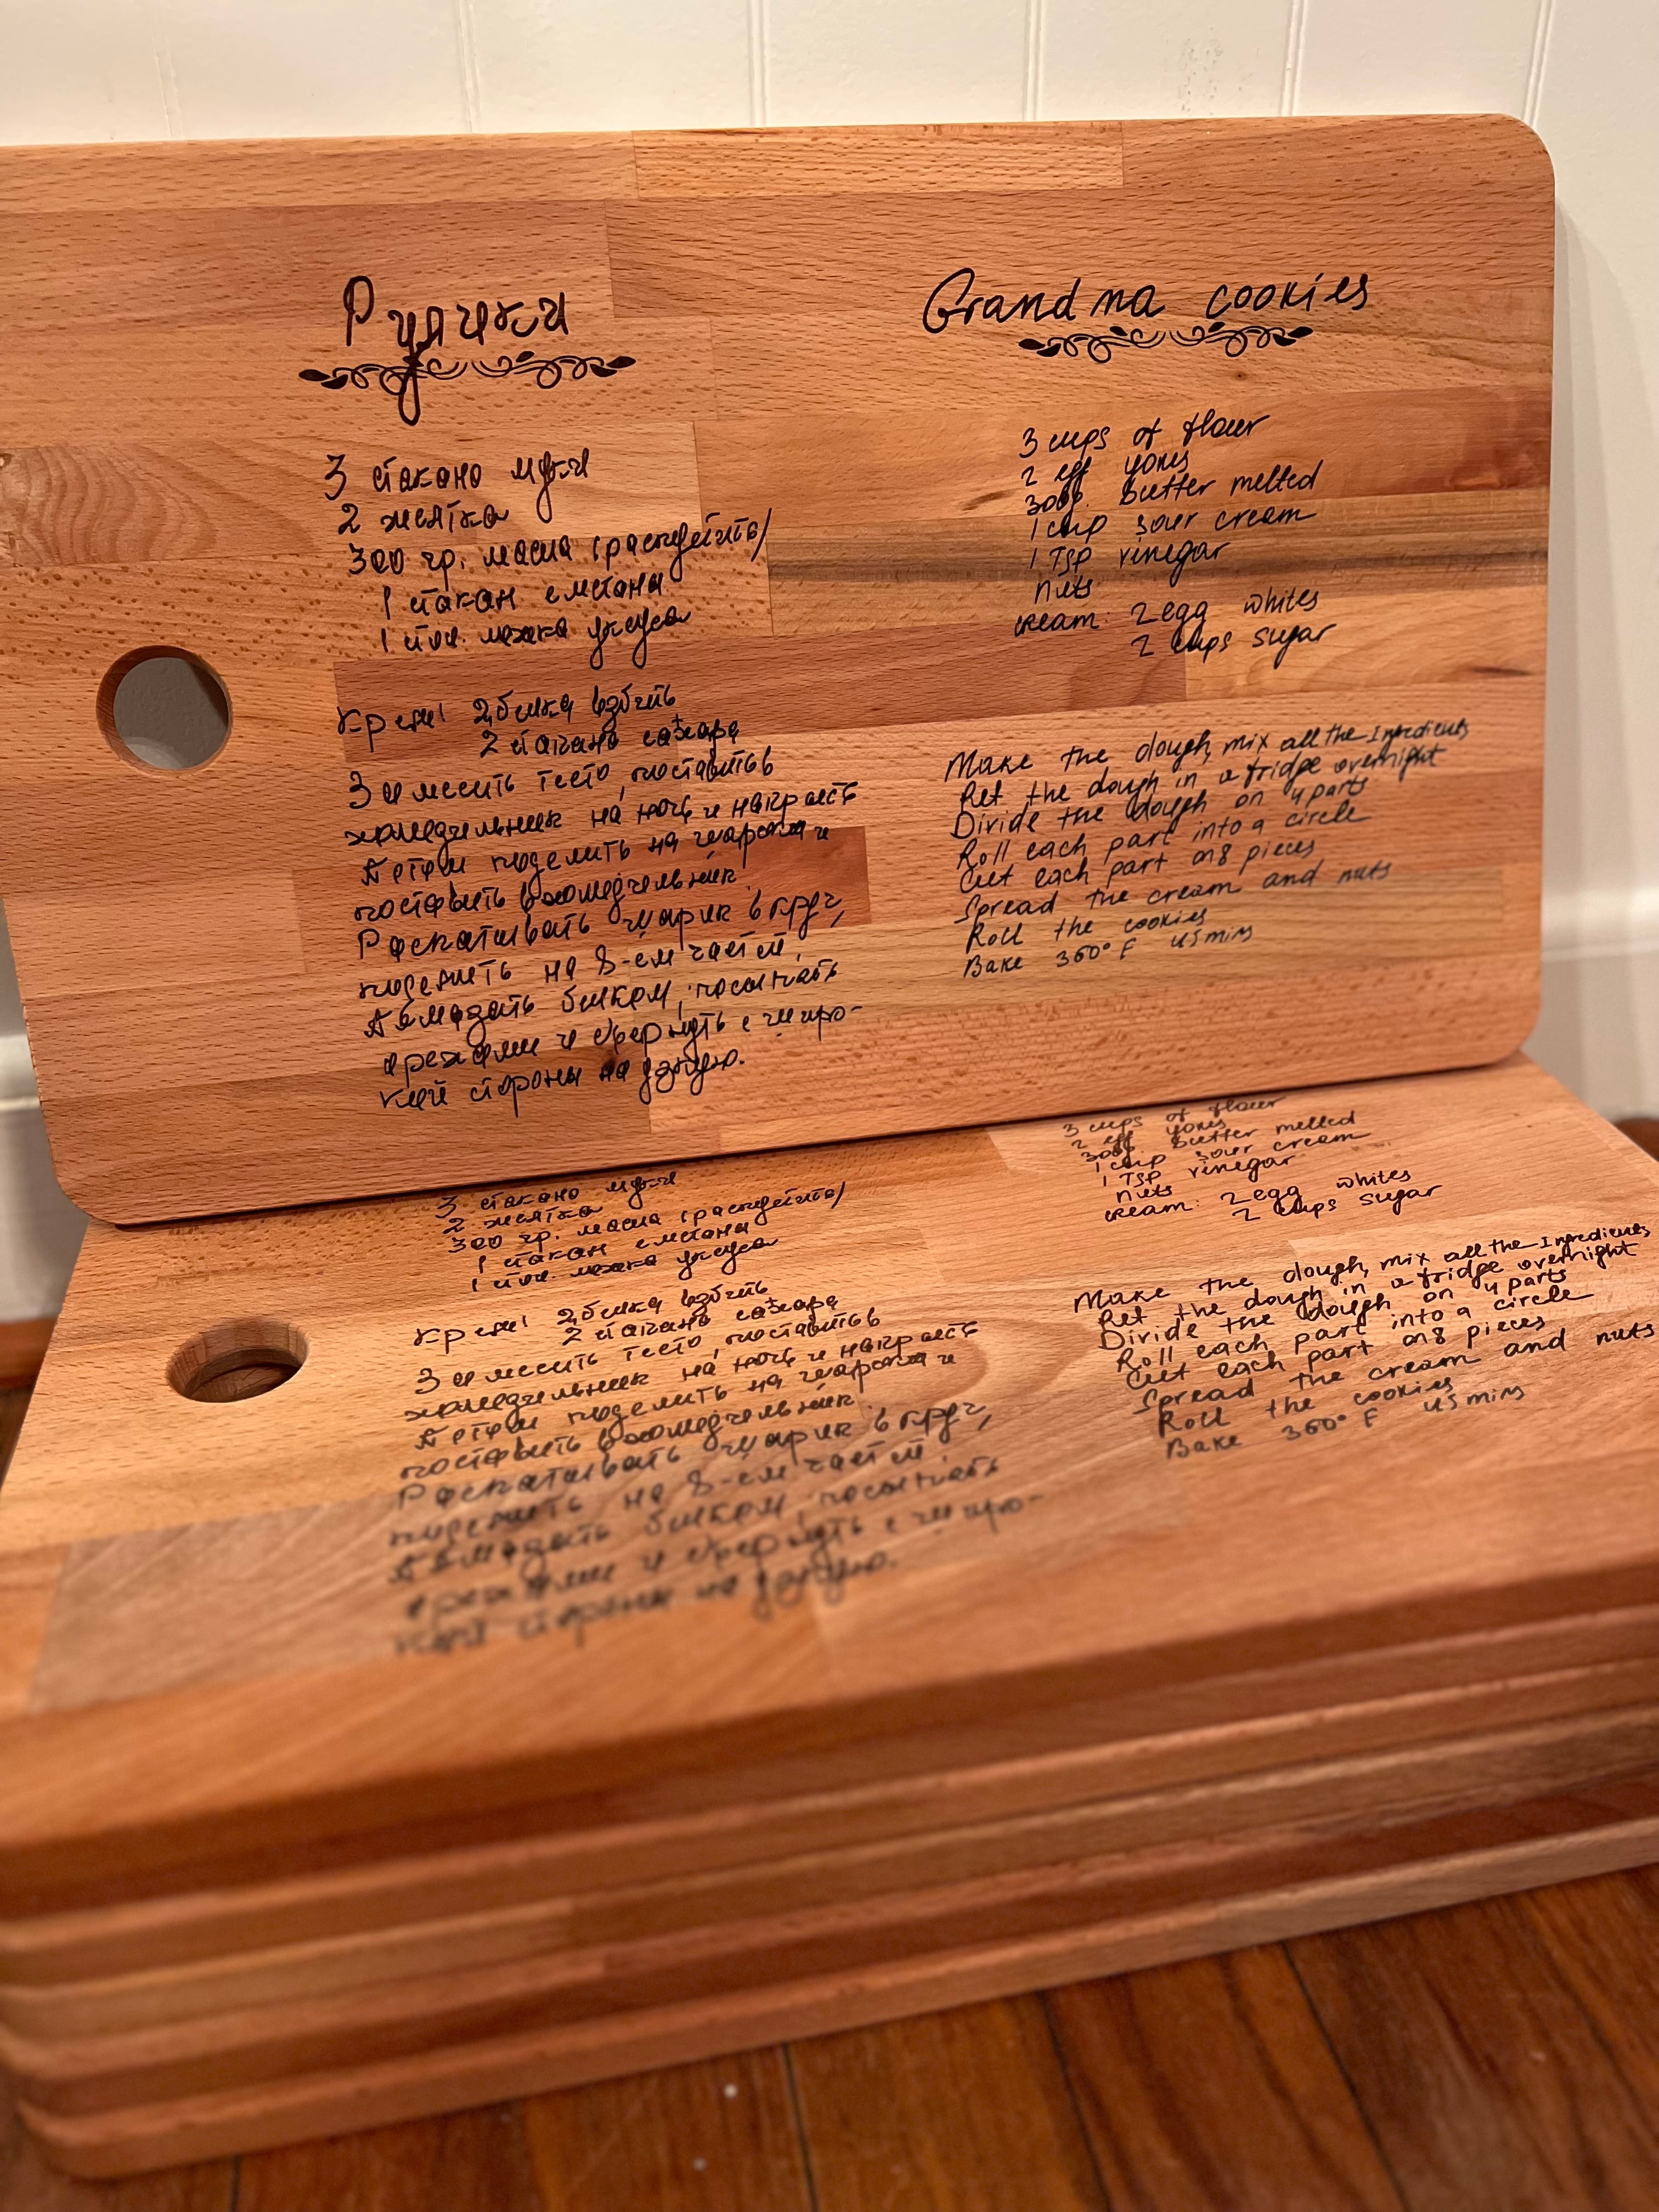 Рулики
3 стакана муки
2 желтка
300 гр. масла (распустить)
1 стакан сметаны
1 стол. ложка уксуса
крем: 2 белка взбить
2 стакана сахара
Замесить тесто, поставить
холодильник на ночь и накрыть
Потом поделить на шарики и
поставить в холодильник.
Раскатывать шарик в круг,
поделить на 8-ем частей,
намазать белком, посыпать
орехами и свернуть с широ-
кой стороны на узкую.
Grandma cookies
3 cups of flour
2 eff yoxes
300g. butter melted
1 cup sour cream
1 TSP vinegar
nuts
cream: 2 egg whites
2 cups sugar
Make the dough, mix all the Ingredients
Ret the dough in a fridge overnight
Divide the dough on 4 parts
Roll each part into a circle
Cut each part on 8 pieces
Spread the cream and nuts
Roll the cookies
Bake 360° F 45 mins
3 стакана муки
2 желтка
300 гр. масла (распустить)
1 стакан сметаны
1 стол. ложка уксуса
крем: 2 белка взбить
2 стакана сахара
Замесить тесто, поставить
холодильник на ночь и накрыть
Потом поделить на шарики и
поставить в холодильник.
Раскатывать шарик в круг,
поделить на 8-ем частей,
намазать белком, посыпать
орехами и свернуть с широ-
кой стороны на узкую.
3 cups of flour
2 eff yoxes
300g. butter melted
1 cup sour cream
1 TSP vinegar
nuts
cream: 2 egg whites
2 cups sugar
Make the dough, mix all the Ingredients
Ret the dough in a fridge overnight
Divide the dough on 4 parts
Roll each part into a circle
Cut each part on 8 pieces
Spread the cream and nuts
Roll the cookies
Bake 360° F 45 mins